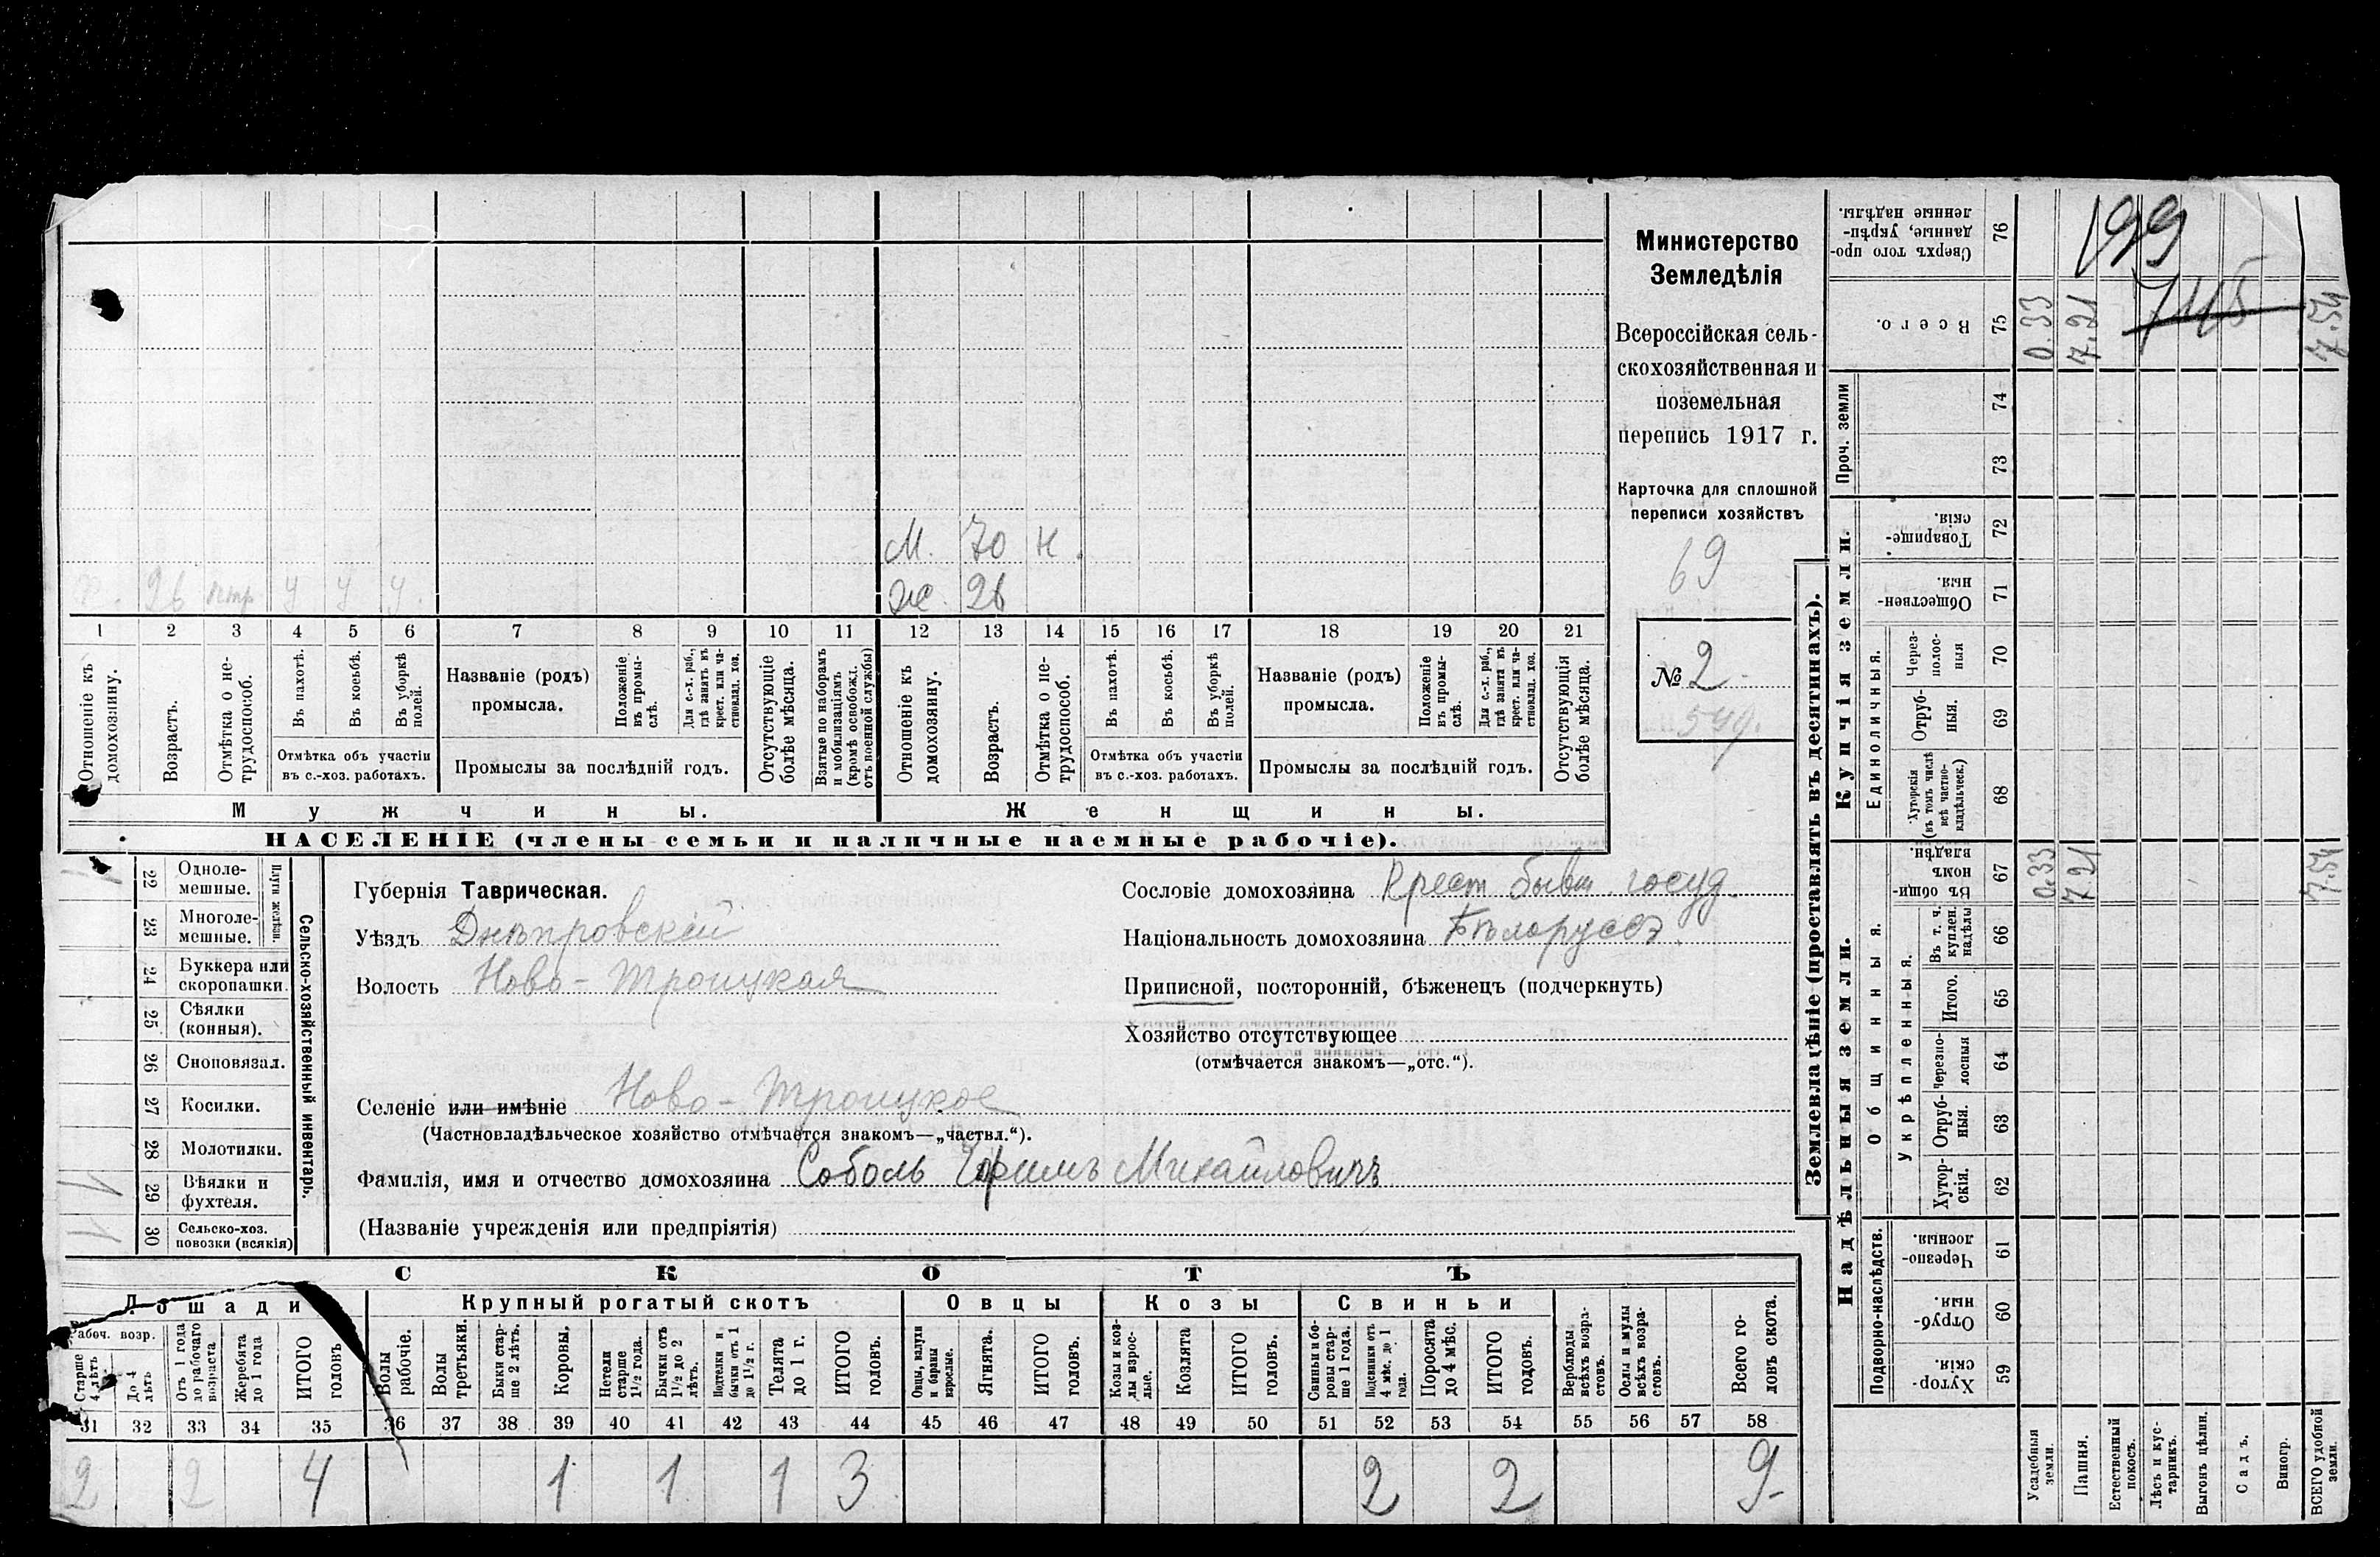 Министерство
Земледѣлія
Всероссійская сель-
скохозяйственная и
поземельная
перепись 1917 г.
Карточка для сплошной
переписи хозяйствъ
69
№ 2
М. 70 н.
26 у у у.
Ж. 26
1 2 3 4 5 6 7 8 9 10 11 12 13 14 15 16 17 18 19 20 21
Отношеніе къ домохозяину.
Возрастъ.
Отмѣтка о не-трудоспособ.
Въ пахотѣ.
Въ косьбѣ.
Въ уборкѣ полей.
Отмѣтка объ участіи
въ с.-хоз. работахъ.
Названіе (родъ)
промысла.
Положеніе въ промы-слѣ.
Для с.-х. раб., гдѣ занятъ въ крест. или ча-стновлад. хоз.
Промыслы за послѣдній годъ.
Отсутствующіе болѣе мѣсяца.
Взятые по наборамъ и мобилизаціямъ (кромѣ освобожд. отъ военной службы)
Отношеніе къ домохозяину.
Возрастъ.
Отмѣтка о не-трудоспособ.
Въ пахотѣ.
Въ косьбѣ.
Въ уборкѣ полей.
Отмѣтка объ участіи
въ с.-хоз. работахъ.
Названіе (родъ)
промысла.
Положеніе въ промы-слѣ.
Для с.-х. раб., гдѣ заняты въ крест. или ча-стновлад. хоз.
Промыслы за послѣдній годъ.
Отсутствующія болѣе мѣсяца.
Мужчины.
Женщины.
НАСЕЛЕНІЕ (члены семьи и наличные наемные рабочіе).
Губернія Таврическая.
Уѣздъ Днѣпровскій
Волость Ново-Троицкая
Селеніе или имѣніе Ново-Троицкое
(Частновладѣльческое хозяйство отмѣчается знакомъ—„частвл.“).
Фамилія, имя и отчество домохозяина Соболь Ефимъ Михайловичъ
(Названіе учрежденія или предпріятія)
Сословіе домохозяина Крест. бывш. госуд.
Національность домохозяина Бѣлоруссъ.
Приписной, посторонній, бѣженецъ (подчеркнуть)
Хозяйство отсутствующее
(отмѣчается знакомъ—„отс.“).
Сельско-хозяйственный инвентарь.
Плуги желѣзн.
22 Одноле-мешные. 1
23 Многоле-мешные.
24 Буккера или скоропашки.
25 Сѣялки (конныя).
26 Сноповязал.
27 Косилки.
28 Молотилки.
29 Вѣялки и фухтеля. 1
30 Сельско-хоз. повозки (всякія) 1
СКОТЪ
Лошади
Крупный рогатый скотъ
Овцы
Козы
Свиньи
Рабоч. возр.
Старше 4 лѣтъ
До 4 лѣтъ
Отъ 1 года до рабочаго возраста
Жеребята до 1 года
ИТОГО головъ
Волы рабочіе.
Волы третьяки.
Быки стар-ше 2 лѣтъ.
Коровы.
Нетели старше 1½ года.
Бычки отъ 1½ до 2 лѣтъ.
Подтелки и бычки отъ 1 до 1½ г.
Телята до 1 г.
ИТОГО головъ.
Овцы, валухи и бараны взрослые.
Ягнята.
ИТОГО головъ.
Козы и коз-лы взрос-лые.
Козлята
ИТОГО головъ.
Свиньи и бо-ровы стар-ше 1 года.
Подсвинки отъ 4 мѣс. до 1 года.
Поросята до 4 мѣс.
ИТОГО головъ.
Верблюды всѣхъ возра-стовъ.
Ослы и мулы всѣхъ возра-стовъ.
Всего го-ловъ скота.
31 32 33 34 35 36 37 38 39 40 41 42 43 44 45 46 47 48 49 50 51 52 53 54 55 56 57 58
2 2 4 1 1 1 3 2 2 9
Землевладѣніе (проставлять въ десятинахъ).
Надѣльныя земли.
Купчія земли.
Проч. земли
Подворно-наслѣдств.
Общинныя.
Укрѣпленныя.
Единоличныя.
Сверхъ того про-данные, укрѣп-ленные надѣлы. 76
Всего. 75
74
73
Товарище-скія. 72
Обществен-ныя. 71
Через-полос-ныя 70
Отруб-ныя. 69
Хуторскія (въ томъ числѣ всѣ частно-владѣльческ.) 68
Въ общи-номъ владѣн. 67
Въ т. ч. куплен. надѣлы 66
Итого. 65
Черезпо-лосныя 64
Отруб-ныя. 63
Хутор-скія. 62
Черезпо-лосныя. 61
Отруб-ныя. 60
Хутор-скія. 59
199
0.33 7.21 7.54
0.33 7.21 7.54
Усадебныя земли.
Пашня.
Естественный покосъ.
Лѣсъ и кус-тарникъ.
Выгонъ цѣлин.
Садъ.
Виногр.
ВСЕГО удобной земли.